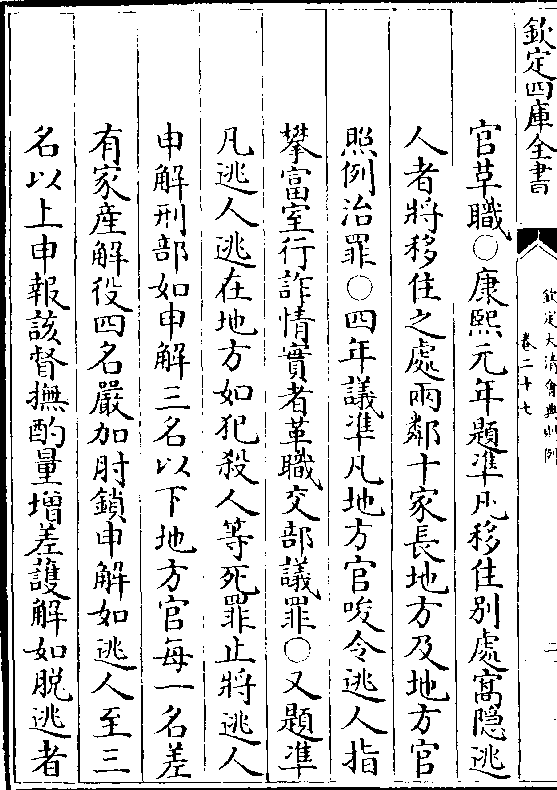 欽定四庫全書
欽定大清會典則例
卷二十七
二
官革職○康熙元年題準凡移住别處窩隠逃
人者將移住之處兩鄰十家長地方及地方官
照例治罪○四年議準凡地方官唆令逃人指
攀富室行詐情實者革職交部議罪○又題準
凡逃人逃在地方如犯殺人等死罪止將逃人
申解刑部如申解三名以下地方官每一名差
有家産解役四名嚴加肘鎖申解如逃人至三
名以上申報該督撫酌量增差䕶解如脱逃者